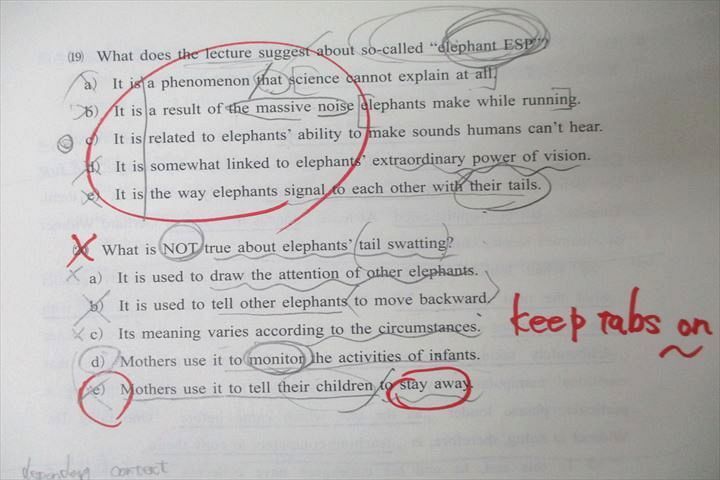 (19) What does the lecture suggest about so-called “elephant ESP”?
a) It is a phenomenon that science cannot explain at all.
b) It is a result of the massive noise elephants make while running.
c) It is related to elephants’ ability to make sounds humans can’t hear.
d) It is somewhat linked to elephants’ extraordinary power of vision.
e) It is the way elephants signal to each other with their tails.
What is NOT true about elephants’ tail swatting?
a) It is used to draw the attention of other elephants.
b) It is used to tell other elephants to move backward.
c) Its meaning varies according to the circumstances.
keep tabs on
d) Mothers use it to monitor the activities of infants.
e) Mothers use it to tell their children to stay away.
depending context